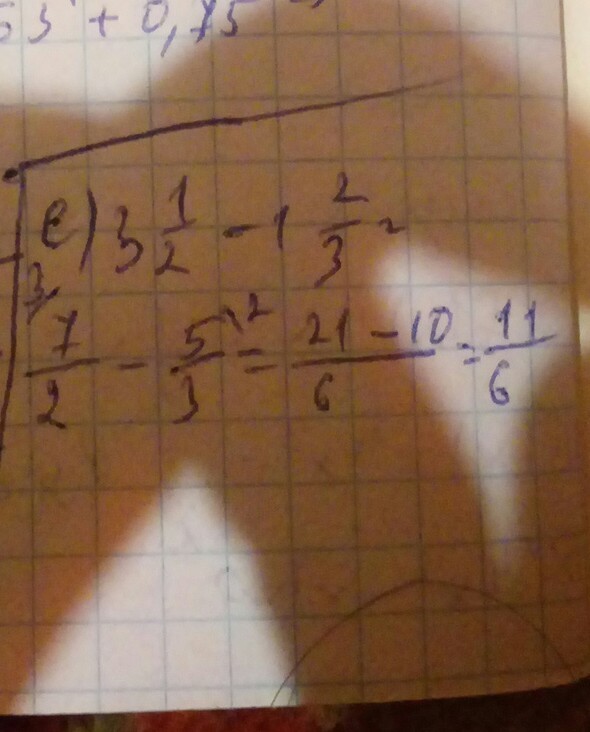 + 0,75
е) 3 1/2 - 1 2/3 =
3/ 7/2 - 5/3 \2 = 21-10/6 = 11/6